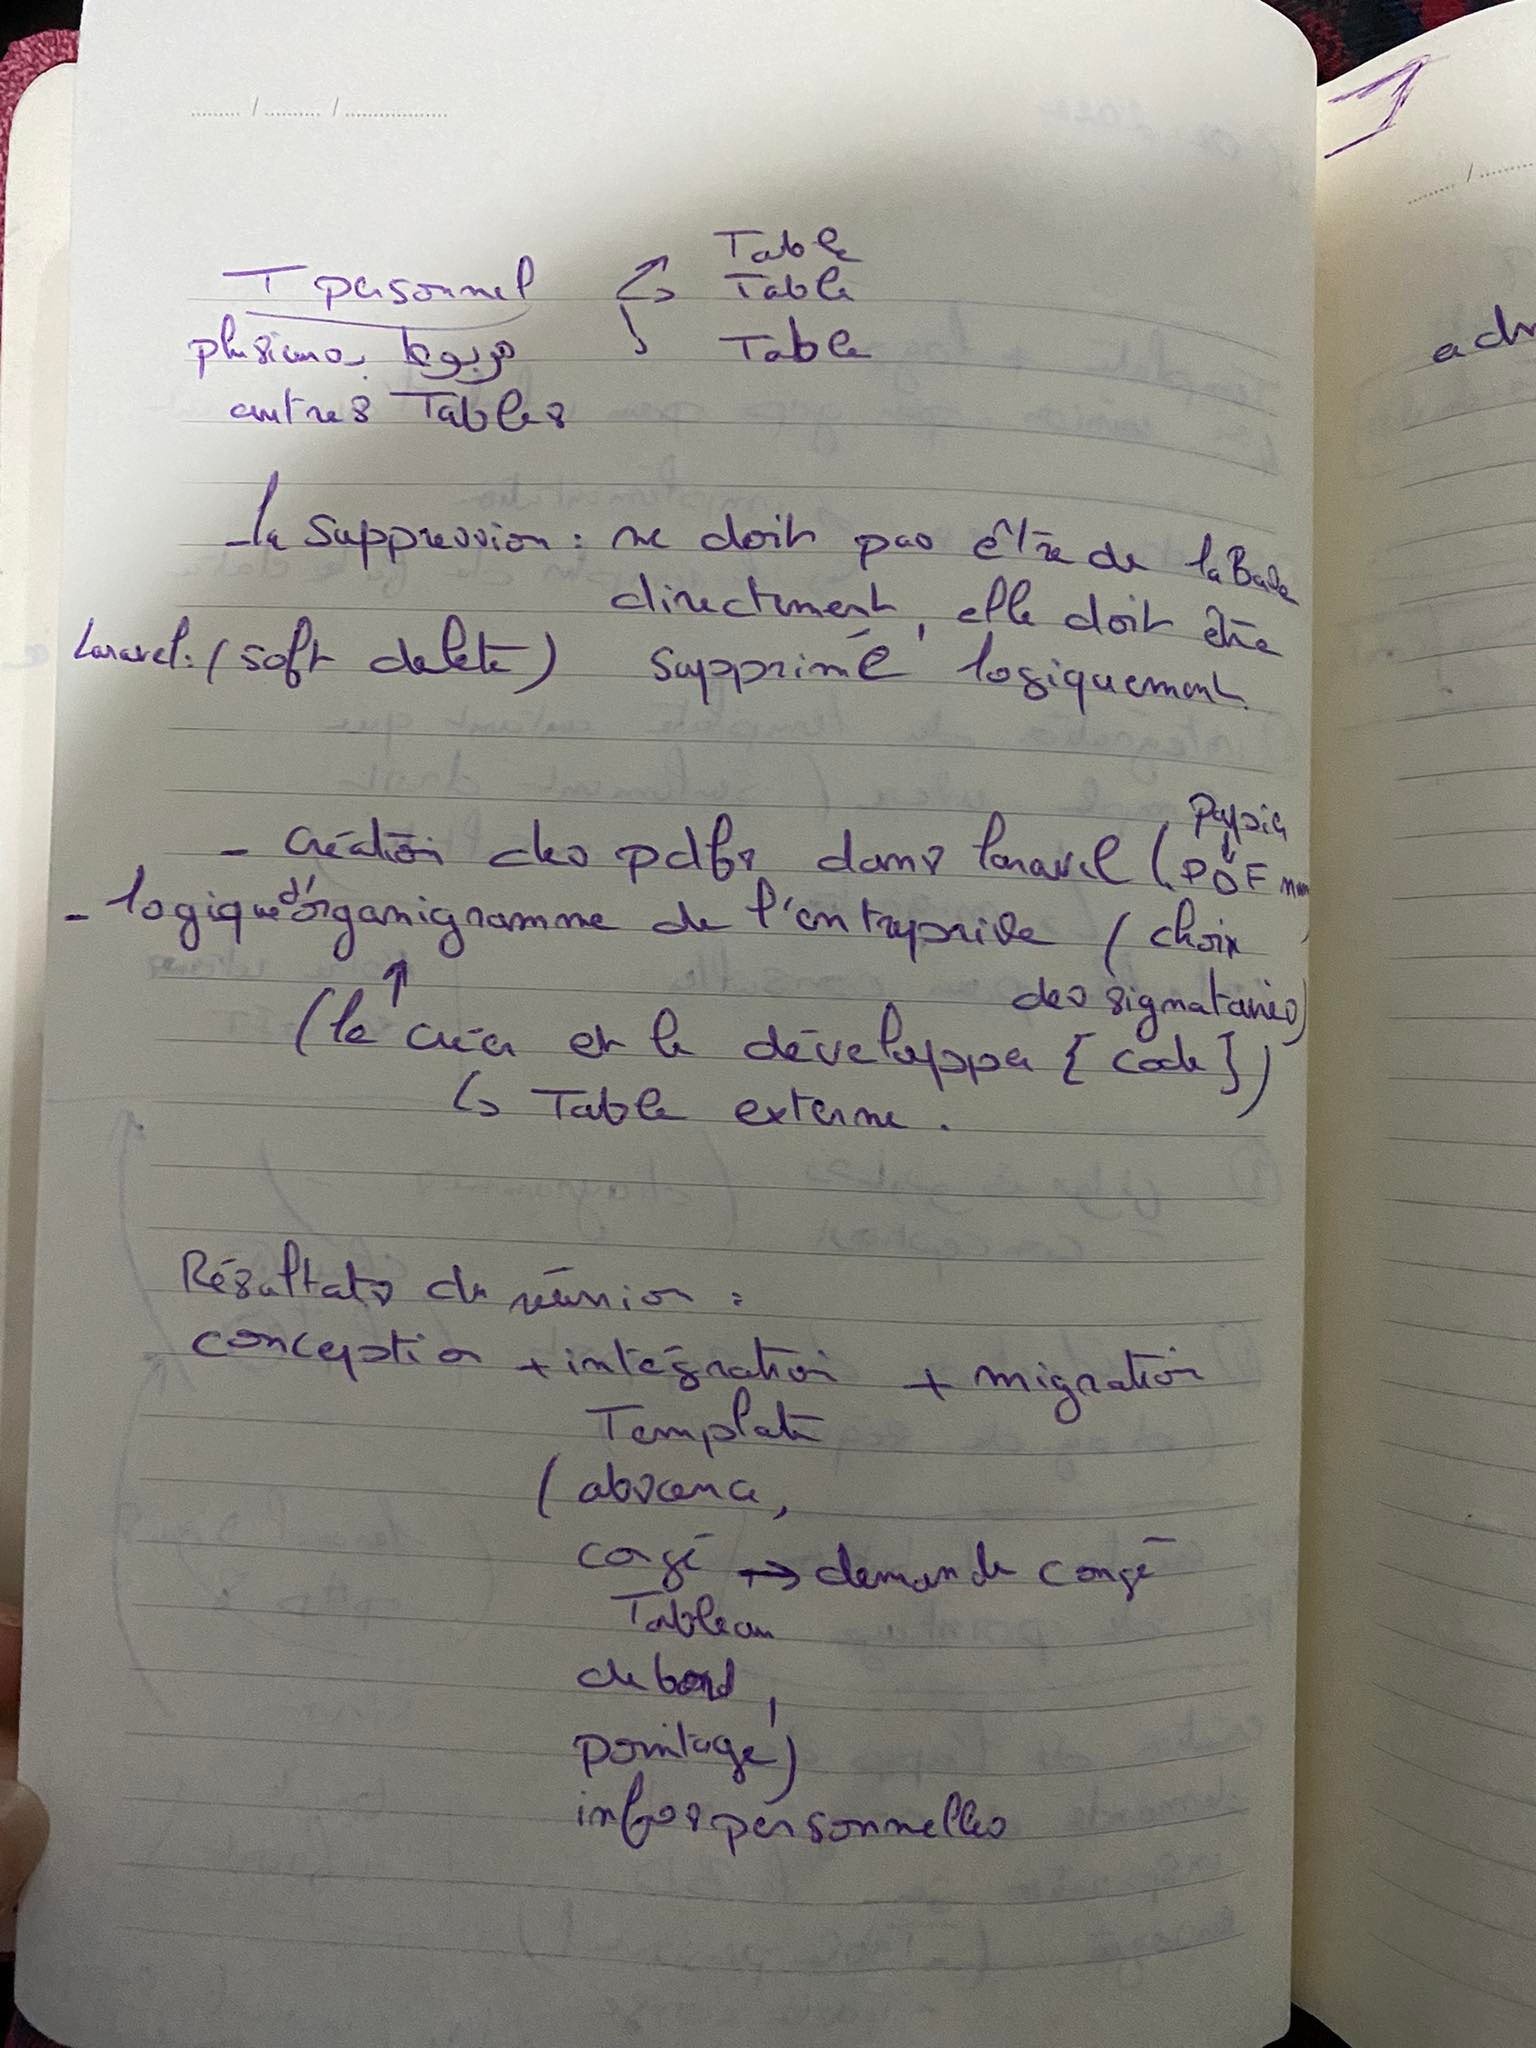 T personnel
Table
Table
Table
plusieurs مربوط
autres Tables
- la suppression : ne doit pas être de la Base
directement, elle doit être
Laravel : (soft delete) supprimé logiquement.
- création des pdfs dans laravel (Papier
↓
PDF
- logique d'organigramme de l'entreprise (choix
des signataires)
(le créer et le développer [code])
↳ Table externe.
Résultats de réunion :
conception + intégration + migration
Template
(absence,
congé → demande congé
Tableau
de bord,
pointage)
infos personnelles